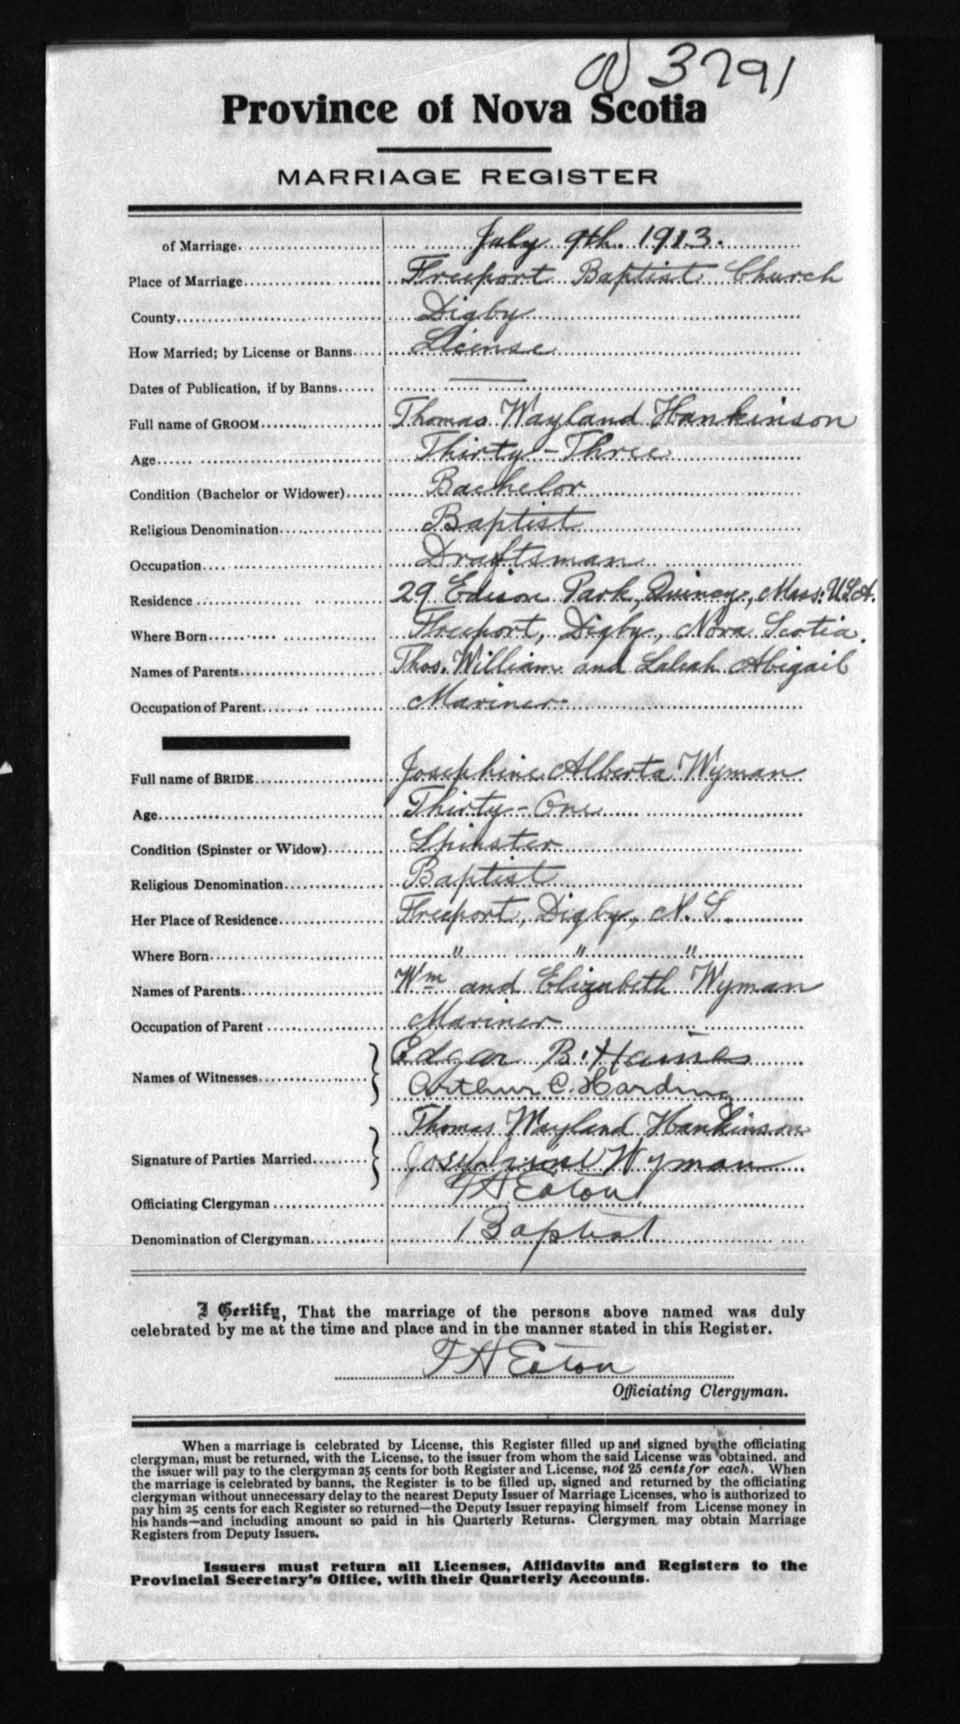 N 3791
Province of Nova Scotia
MARRIAGE REGISTER
of Marriage July 9th. 1913.
Place of Marriage Freeport Baptist Church
County Digby
How Married; by License or Banns License
Dates of Publication, if by Banns —
Full name of GROOM Thomas Wayland Hankinson
Age Thirty-Three
Condition (Bachelor or Widower) Bachelor
Religious Denomination Baptist
Occupation Draftsman
Residence 29 Edison Park, Quincy, Mass. U.S.A.
Where Born Freeport, Digby, Nova Scotia.
Names of Parents Thos. William and Laleah Abigail
Occupation of Parent Mariner
Full name of BRIDE Josephine Alberta Wyman
Age Thirty-One
Condition (Spinster or Widow) Spinster
Religious Denomination Baptist
Her Place of Residence Freeport, Digby, N.S.
Where Born " " "
Names of Parents Wm and Elizabeth Wyman
Occupation of Parent Mariner
Edgar B. Haines
Names of Witnesses
Arthur C. Harding
Thomas Wayland Hankinson
Signature of Parties Married Josephine Wyman
Officiating Clergyman Eaton
Denomination of Clergyman Baptist
I Certify, That the marriage of the persons above named was duly
celebrated by me at the time and place and in the manner stated in this Register.
Eaton
Officiating Clergyman.
When a marriage is celebrated by License, this Register filled up and signed by the officiating
clergyman, must be returned, with the License, to the issuer from whom the said License was obtained, and
the issuer will pay to the clergyman 25 cents for both Register and License, not 25 cents for each. When
the marriage is celebrated by banns, the Register is to be filled up, signed and returned by the officiating
clergyman without unnecessary delay to the nearest Deputy Issuer of Marriage Licenses, who is authorized to
pay him 25 cents for each Register so returned—the Deputy Issuer repaying himself from License money in
his hands—and including amount so paid in his Quarterly Returns. Clergymen may obtain Marriage
Registers from Deputy Issuers.
Issuers must return all Licenses, Affidavits and Registers to the
Provincial Secretary's Office, with their Quarterly Accounts.